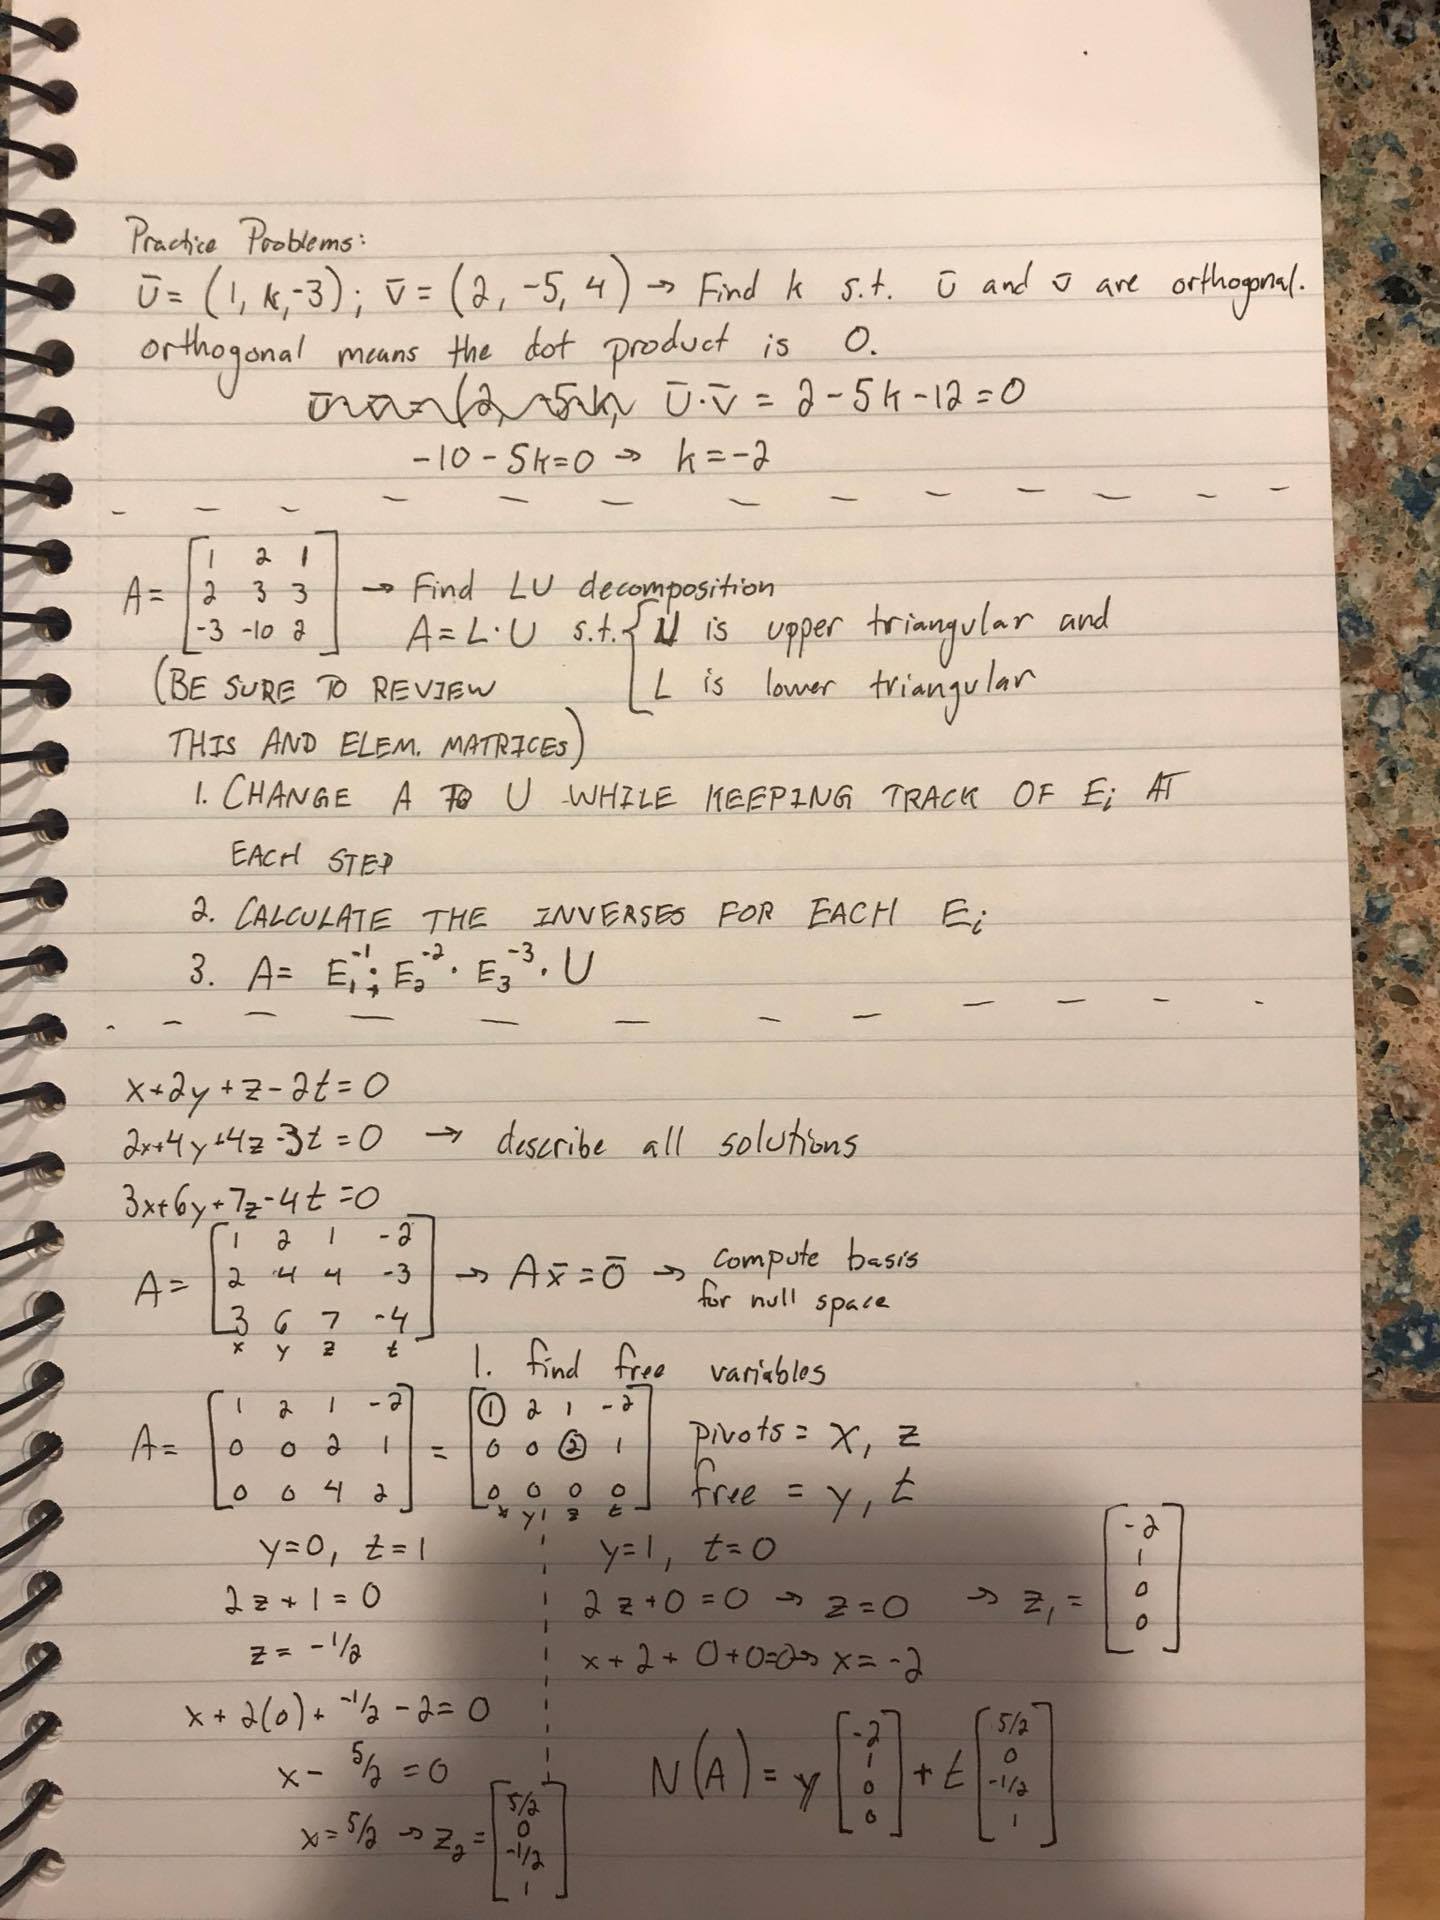 Practice Problems:
ū = (1, k, -3); v̄ = (2, -5, 4) → Find k s.t. ū and v̄ are orthogonal.
orthogonal means the dot product is 0.
ū·v̄ = 2 - 5k - 12 = 0
-10 - 5k = 0 → k = -2
A = [1 2 1
2 3 3
-3 -10 2] → Find LU decomposition
A = L·U s.t. { U is upper triangular and
L is lower triangular
(BE SURE TO REVIEW
THIS AND ELEM. MATRICES)
1. CHANGE A TO U WHILE KEEPING TRACK OF Ei AT
EACH STEP
2. CALCULATE THE INVERSES FOR EACH Ei
3. A = E₁⁻¹ · E₂⁻² · E₃⁻³ · U
x + 2y + z - 2t = 0
2x + 4y + 4z - 3t = 0 → describe all solutions
3x + 6y + 7z - 4t = 0
A = [1 2 1 -2
2 4 4 -3
3 6 7 -4] → Ax̄ = 0̄ → compute basis
for null space
x y z t
1. find free variables
A = [1 2 1 -2
0 0 2 1
0 0 4 2] = [1 2 1 -2
0 0 2 1
0 0 0 0]
x y z t
pivots = x, z
free = y, t
y=0, t=1
2z + 1 = 0
z = -1/2
x + 2(0) + -1/2 - 2 = 0
x - 5/2 = 0
x = 5/2 → z₂ = [5/2
0
-1/2
1]
y=1, t=0
2z + 0 = 0 → z = 0 → z₁ = [-2
1
0
0]
x + 2 + 0 + 0 = 0 → x = -2
N(A) = y [-2
1
0
0] + t [5/2
0
-1/2
1]